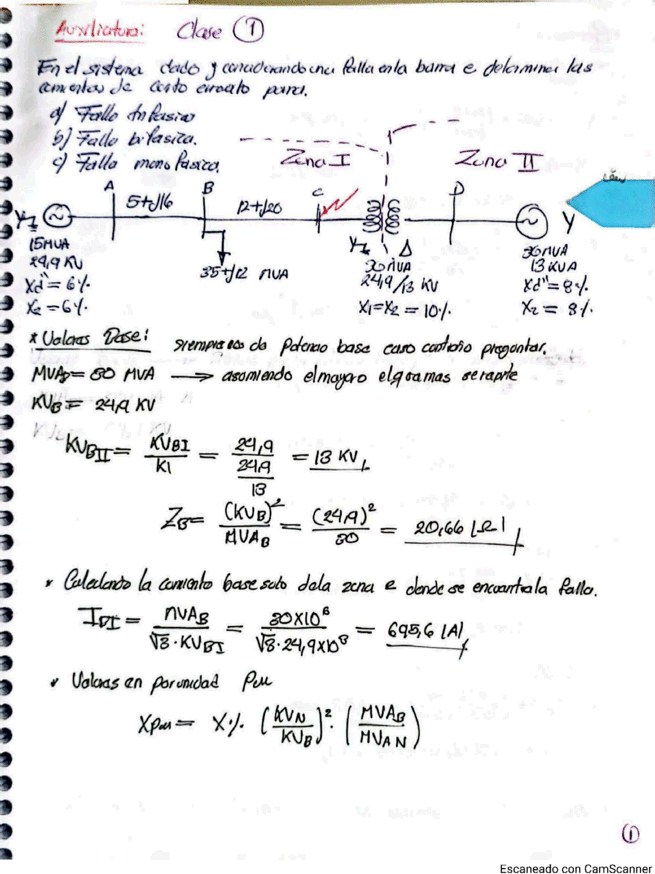 Auxiliatura: Clase ①
En el sistema dado y considerando una falla en la barra c determinar las
corrientes de corto circuito para.
a) Falla trifasica
b) Falla bifasica.
c) Falla monofasica.
Zona I Zona II
A B C D
5+j16 12+j20
Y Y
15 MVA
24,9 KV
Xd"= 6%
X2 = 6%
35+j12 MVA
Y Δ
30 MVA
24,9/13 KV
X1=X2 = 10%
30 MVA
13 KVA
Xd"= 8%
X2 = 8%
* Valores Base: siempre nos da Potencia base caso contrario preguntar.
MVAB = 30 MVA → asumiendo el mayor
KVB = 24,9 KV
KVBII = KVBI / K1 = 24,9 / (24,9 / 13) = 13 KV
ZB = (KVB)² / MVAB = (24,9)² / 30 = 20,66 [Ω]
* Calculando la corriente base solo de la zona donde se encuentra la falla.
IBI = MVAB / (√3 · KVBI) = 30x10⁶ / (√3 · 24,9x10³) = 695,6 [A]
* Valores en por unidad Pu
Xpu = X% (KVN / KVB)² · (MVAB / MVAN)
①
Escaneado con CamScanner